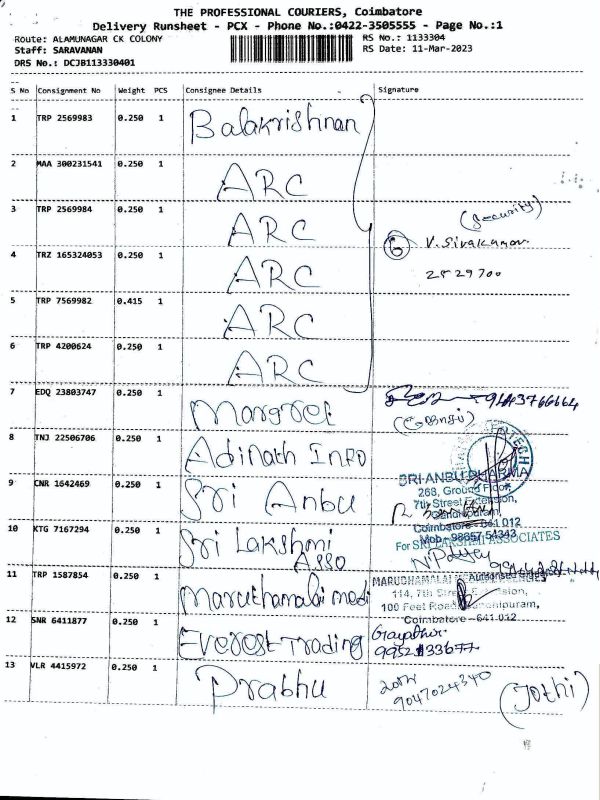 THE PROFESSIONAL COURIERS, Coimbatore
Delivery Runsheet - PCX - Phone No.:0422-3505555 - Page No.:1
Route: ALAMUNAGAR CK COLONY
RS No.: 1133304
Staff: SARAVANAN
RS Date: 11-Mar-2023
DRS No.: DCJB113330401
S No Consignment No Weight PCS Consignee Details Signature
1 TRP 2569983 0.250 1 Balakrishnan
2 MAA 300231541 0.250 1 ARC
3 TRP 2569984 0.250 1 ARC
(Security)
6 V. Sivakumar
4 TRZ 165324053 0.250 1 ARC
2529700
5 TRP 7569982 0.415 1 ARC
6 TRP 4200624 0.250 1 ARC
7 EDQ 23803747 0.250 1 Margret
8 TNJ 22506706 0.250 1 Adinath Info
9 CNR 1642469 0.250 1 Sri Anbu
SRI ANBU DHARMA
268, Ground Floor,
7th Street Extension,
Gandhipuram,
Coimbatore - 641 012
Mob - 98657 54343
10 KTG 7167294 0.250 1 Sri Lakshmi Asso
For SRI LAKSHMI ASSOCIATES
11 TRP 1587854 0.250 1 Maruthamalai Medi
MARUDHAMALAI
114, 7th Street Extension,
100 Feet Road, Gandhipuram,
Coimbatore - 641 012
12 SNR 6411877 0.250 1 Everest Trading
Gayathri
13 VLR 4415972 0.250 1 Prabhu
9047024340
(Jothi)